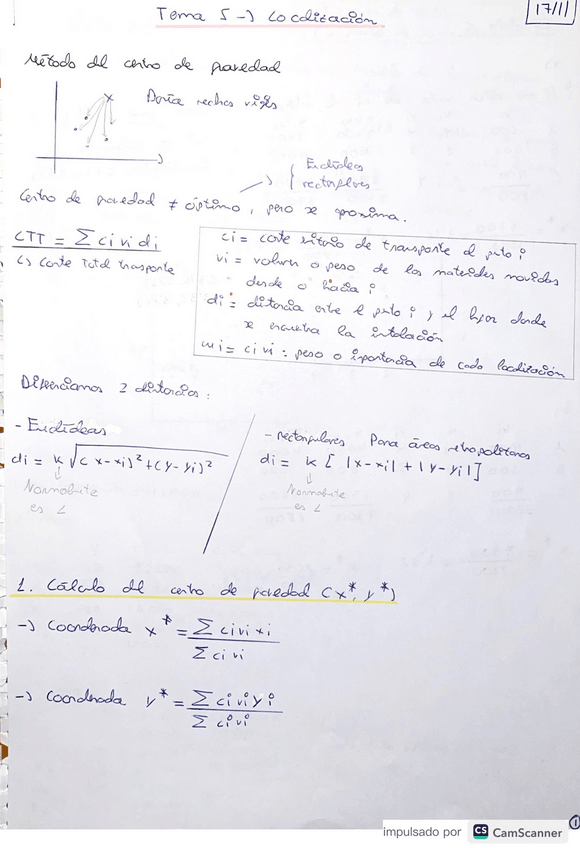 Tema 5 -> Localización
17/11
Método del centro de gravedad
Centro de gravedad ≠ óptimo, pero se aproxima.
Euclídeas
rectangulares
CTT = Σ ci vi di
↳ Coste Total transporte
ci = coste unitario de transporte al punto i
vi = volumen o peso de los materiales movidos
desde o hacia i
di = distancia entre el punto i y el lugar donde
se encuentra la instalación
wi = ci vi : peso o importancia de cada localización
Diferenciamos 2 distancias :
- Euclídeas
di = k √(x-xi)² + (y-yi)²
Normalmente
es 1
- rectangulares Para áreas metropolitanas
di = k [ |x-xi| + |y-yi| ]
Normalmente
es 1
1. Cálculo del centro de gravedad (x*, y*)
-> Coordenada x* = Σ ci vi xi / Σ ci vi
-> Coordenada y* = Σ ci vi yi / Σ ci vi
1
impulsado por CS CamScanner